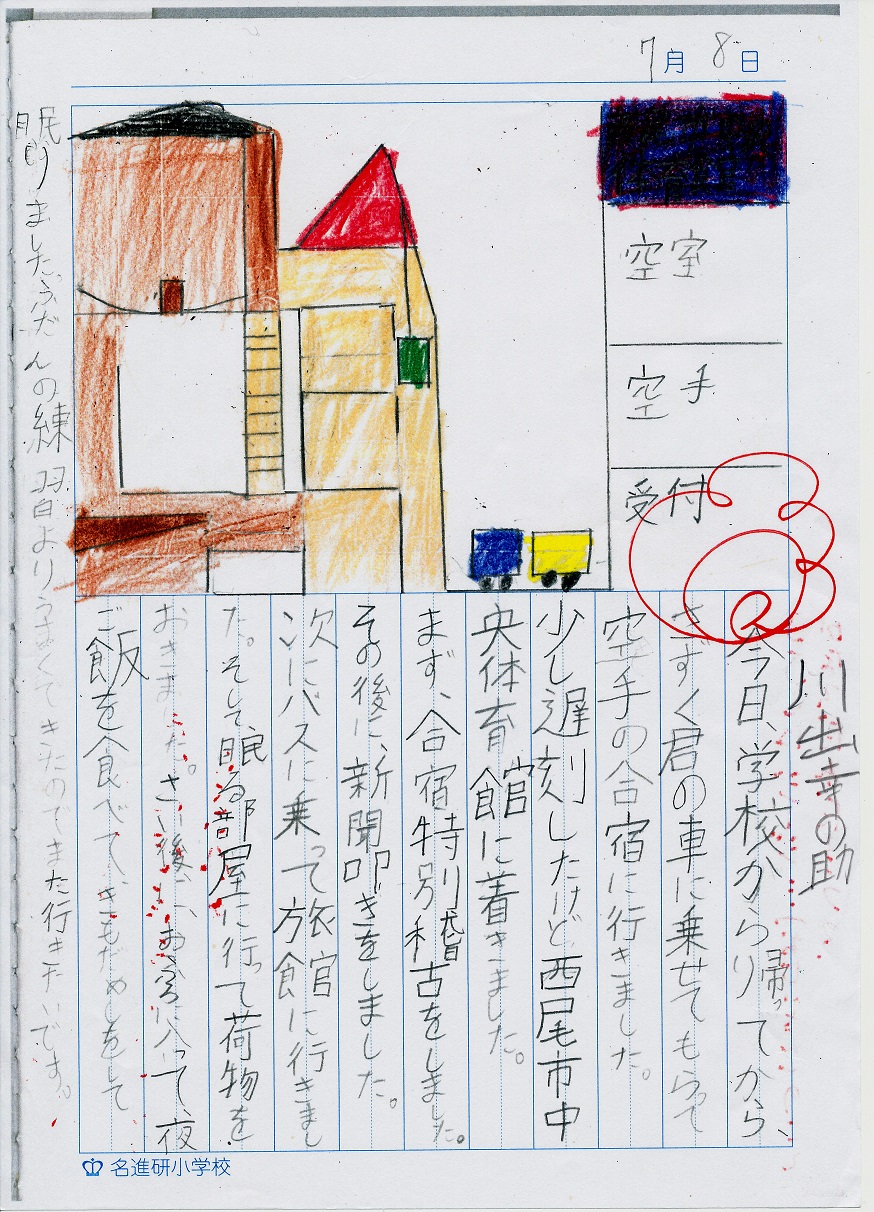 7月8日
空室
空手
受付
川出幸の助
今日、学校から帰ってから、
きずく君の車に乗せてもらって
空手の合宿に行きました。
少し遅刻したけど西尾市中
央体育館に着きました。
まず、合宿特別稽古をしました。
その後に、新聞叩きをしました。
次にバスに乗って旅館に行きまし
た。そして眠る部屋に行って荷物を
おきました。さい後に、お入って夜
ご飯を食べて、きもだめしをして
眠りました。ふだんの練習よりうまくできたのでまた行きたいです。
名進研小学校